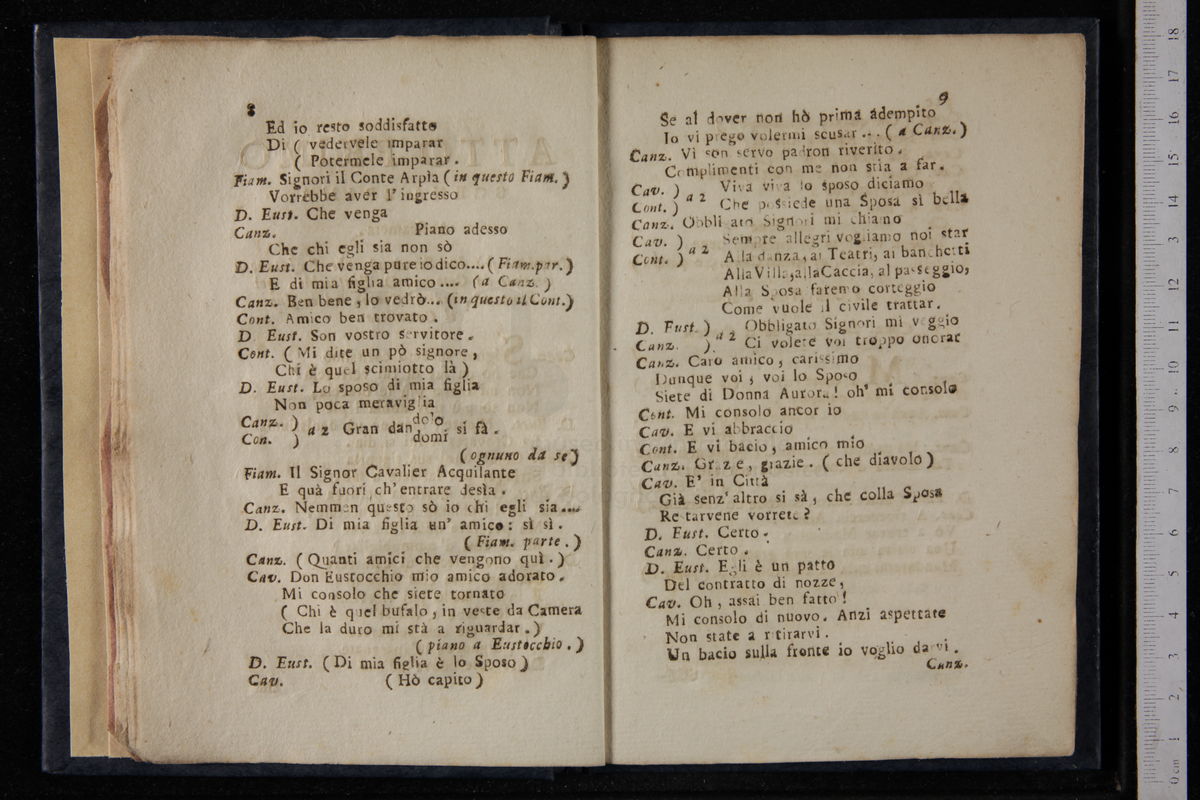 8
Ed io resto soddisfatto
Di ( vedervele imparar
( Potermele imparar .
Fiam. Signori il Conte Arpìa ( in questo Fiam. )
Vorrebbe aver l' ingresso
D. Eust. Che venga
Canz. Piano adesso
Che chi egli sia non sò
D. Eust. Che venga pure io dico.... ( Fiam.par. )
E di mia figlia amico .... (a Canz. )
Canz. Ben bene , lo vedrò... (in questo il Cont.)
Cont. Amico ben trovato .
D. Eust. Son vostro servitore .
Cont. ( Mi dite un pò signore ,
Chi è quel scimiotto là )
D. Eust. Lo sposo di mia figlia
Non poca meraviglia
Canz. ) a 2 Gran dan do'o si fà .
Con. ) domi
( ognuno da se )
Fiam. Il Signor Cavalier Acquilante
E quà fuori ch' entrare desìa .
Canz. Nemmen questo sò io chi egli sia....
D. Eust. Di mia figlia un' amico : sì sì .
( Fiam. parte . )
Canz. ( Quanti amici che vengono quì . )
Cav. Don Eustocchio mio amico adorato .
Mi consolo che siete tornato
( Chi è quel bufalo , in veste da Camera
Che la duro mi stà a riguardar . )
( piano a Eustocchio . )
D. Eust. ( Di mia figlia è lo Sposo )
Cav. ( Hò capito )
9
Se al dover non hò prima adempito
Io vi prego volermi scusar ... ( a Canz. )
Canz. Vi son servo padron riverito .
Complimenti con me non stia a far .
Cav. ) a 2 Viva viva lo sposo diciamo
Cont. ) Che possiede una Sposa sì bella
Canz. Obbligato Signori mi chiamo
Cav. ) a 2 Sempre allegri vogliamo noi star
Cont. ) Alla danza, ai Teatri, ai banchetti
Alla Villa, alla Caccia, al passeggio,
Alla Sposa faremo corteggio
Come vuole il civile trattar .
D. Eust. ) a 2 Obbligato Signori mi veggio
Canz. ) Ci volete voi troppo onorar
Canz. Caro amico , carissimo
Dunque voi , voi lo Sposo
Siete di Donna Aurora ! oh' mi consolo
Cont. Mi consolo ancor io
Cav. E vi abbraccio
Cont. E vi bacio , amico mio
Canz. Grazie , grazie . ( che diavolo )
Cav. E' in Città
Già senz' altro si sà , che colla Sposa
Restarvene vorrete ?
D. Eust. Certo .
Canz. Certo .
D. Eust. Egli è un patto
Del contratto di nozze ,
Cav. Oh , assai ben fatto !
Mi consolo di nuovo. Anzi aspettate
Non state a ritirarvi .
Un bacio sulla fronte io voglio darvi .
Canz.